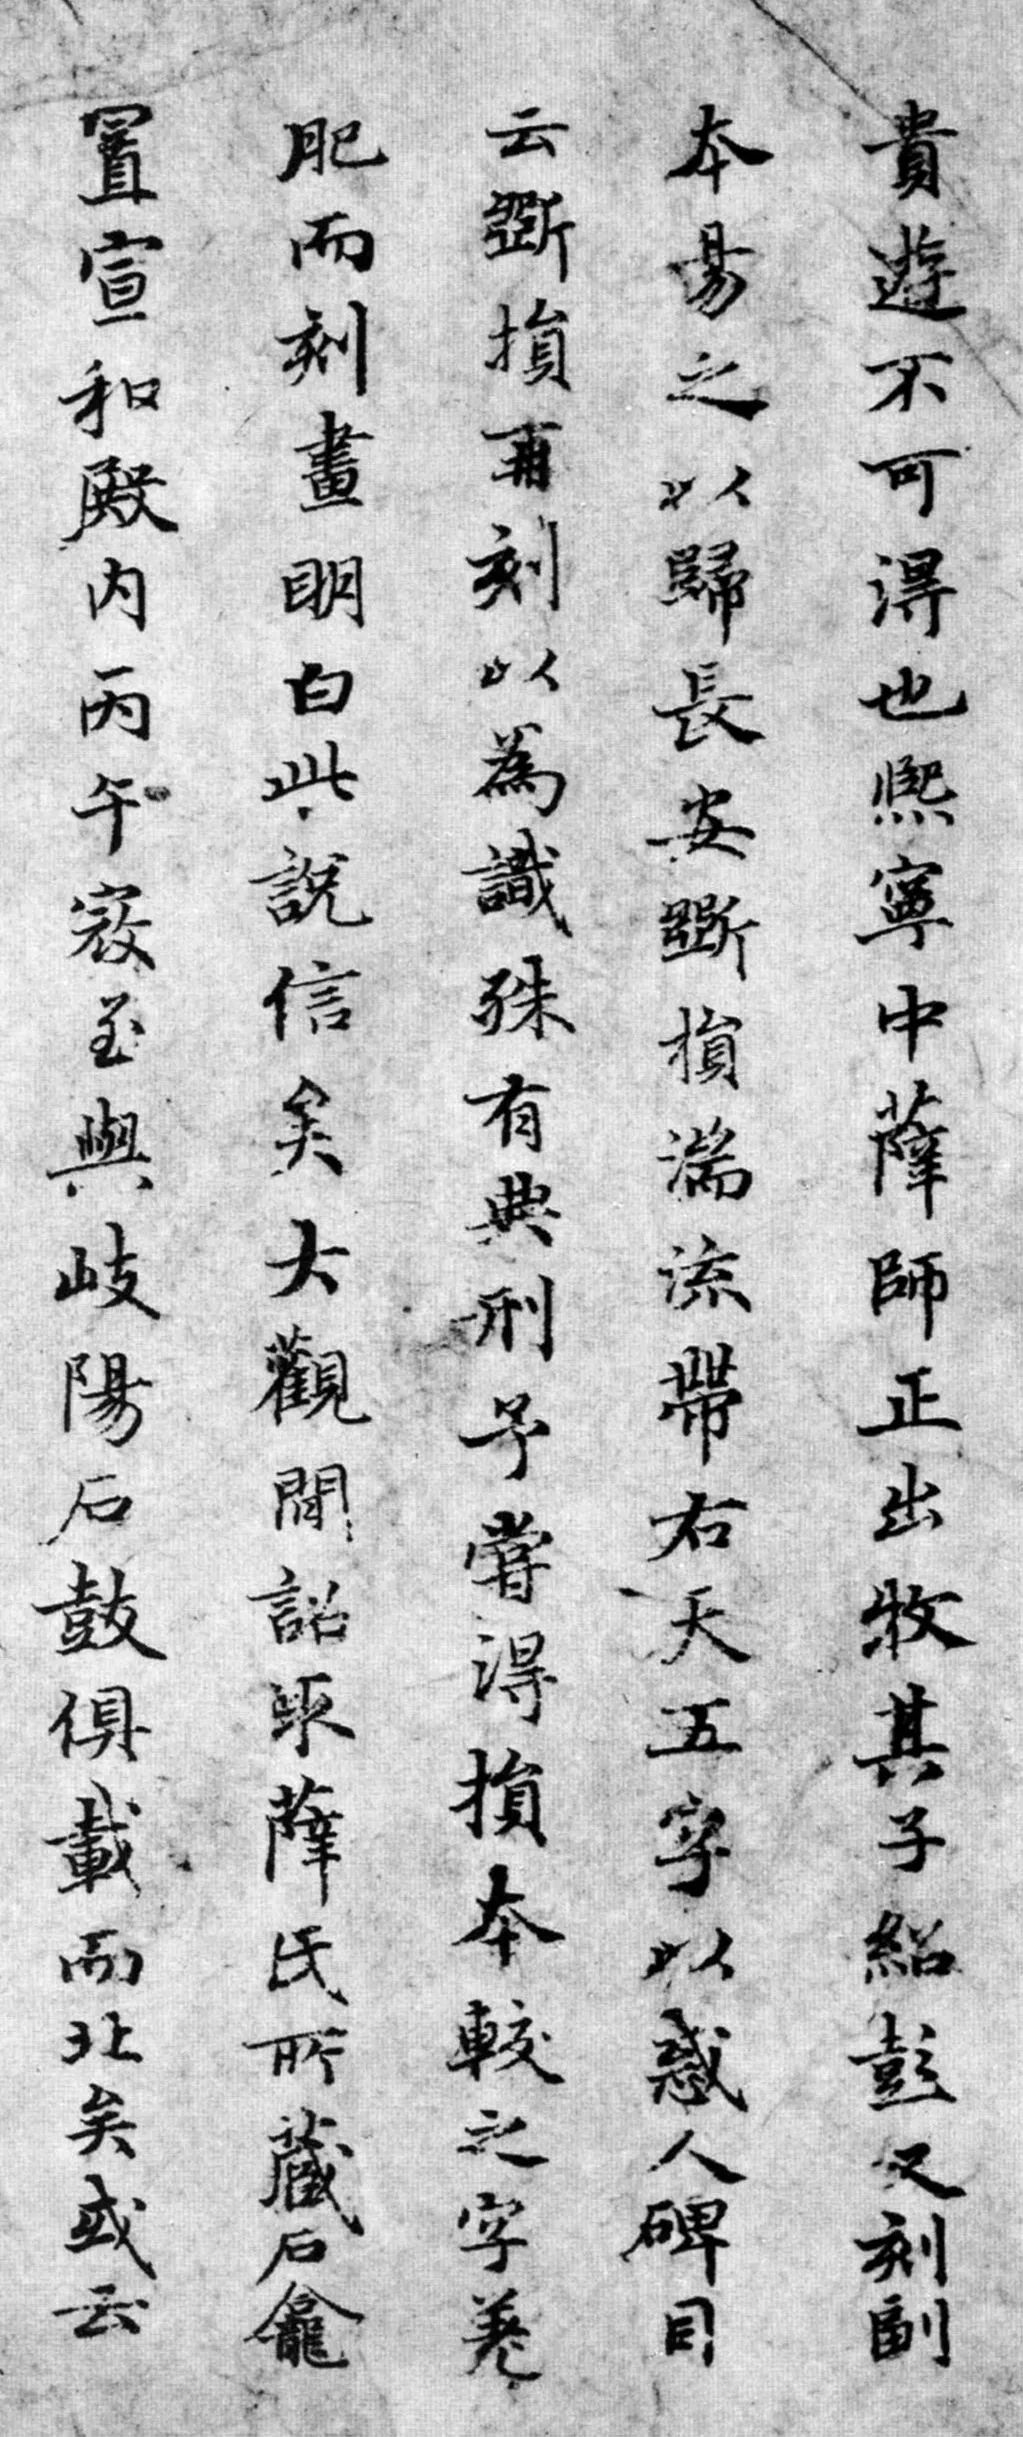 貴遊不可得也熙寧中薛師正出牧其子紹彭又刻副
本易之以歸長安斷損湍流帶右天五字以惑人碑目
云斷損再刻以為識殊有典刑予嘗得損本較之字差
肥而刻畫明白此說信矣大觀間詔取薛氏所藏石龕
置宣和殿內丙午寇至與岐陽石鼓俱載而北矣或云